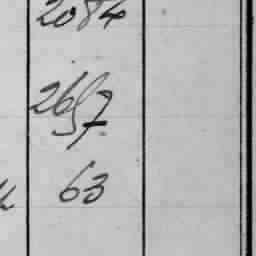 2084
2657
63